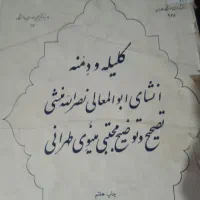 کلیله و دمنه
انشای ابوالمعالی نصرالله منشی
تصحیح و توضیح مجتبی مینوی طهرانی
چاپ هفتم